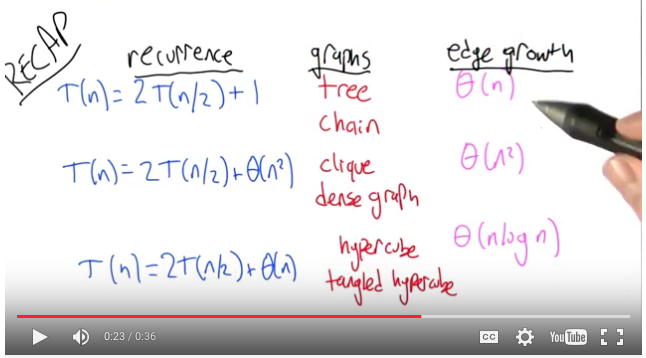 RECAP
recurrence graphs edge growth
T(n) = 2T(n/2) + 1 tree Θ(n)
chain
T(n) = 2T(n/2) + Θ(n²) clique Θ(n²)
dense graph
T(n) = 2T(n/2) + Θ(n) hypercube Θ(n log n)
tangled hypercube
0:23 / 0:36 CC YouTube